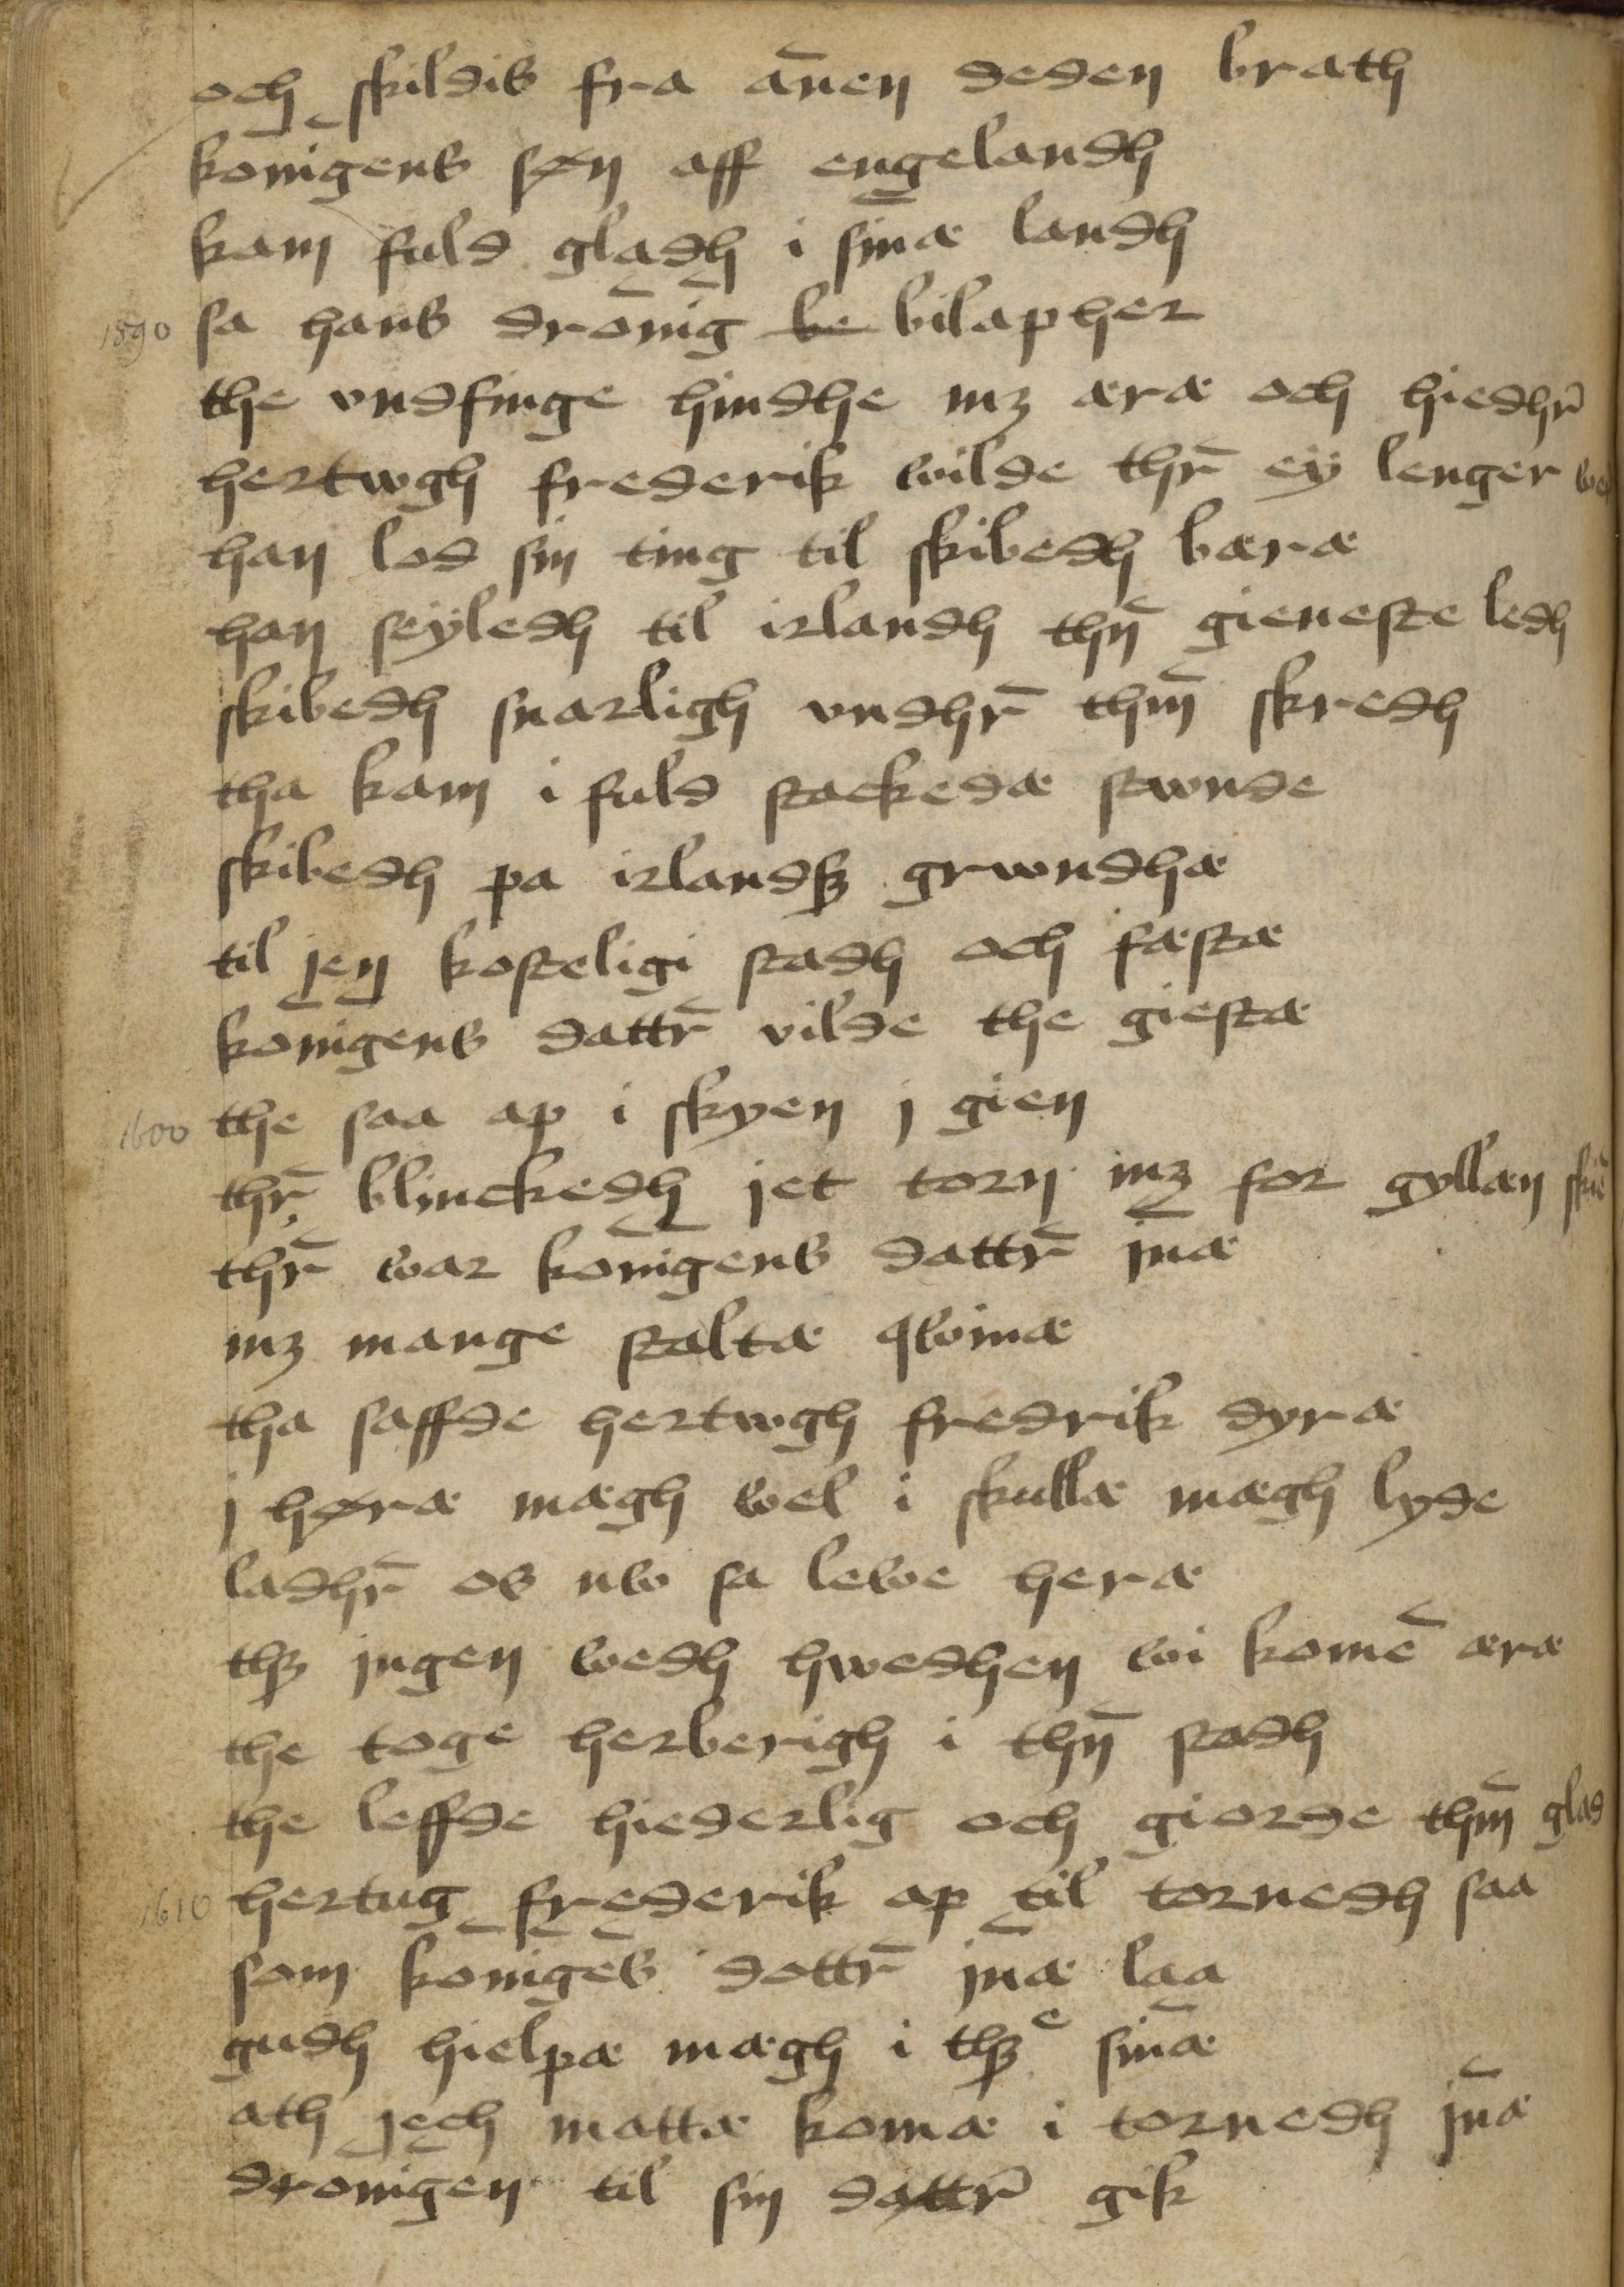 och skildis fra an̄en deden brath
kon̄igens søn aff engelandh
kam fuld gladh i sin̄æ landh
1590 sa hans dron̄ig be bilapher
the vndfinge hindhe mꝫ æræ och hiedhr̄
hertwgh frederik wilde thr̄ eÿ lenger
han lod sin ting til skibedh bæræ
han seÿledh til irlandh thn̄ gieneste ledh
skibedh snarligh vndhr̄ thm̄ skredh
tha kam i fuld stackedæ stwnde
skibedh pa irlandꝫ grwndhæ
til jen kosteligi stadh och fæstæ
kon̄igens dattr̄ vilde the giestæ
1600 the saa ap i skyen j gien
thr̄ blinckedh jet torn mꝫ for gyllæn
thr̄ war kon̄igens dattr̄ jn̄æ
mꝫ mange staltæ qwinæ
tha saffde hertwgh fredrik dyræ
j høræ mægh wel i skullæ mægh lyde
ladhr̄ os nw sa lewe heræ
thꝫ jngen wedh hwedhen wi komē æræ
the toge herberigh i thn̄ stadh
the leffde hiederlig och giorde thm̄ glad
1610 hertug frederik ap til tornedh saa
som kon̄igēs dottr̄ jn̄æ laa
gudh hielpæ mægh i thꝫͤ sin̄æ
ath jech mattæ komæ i tornedh jn̄æ
dron̄igen til sin dattr̄ gik